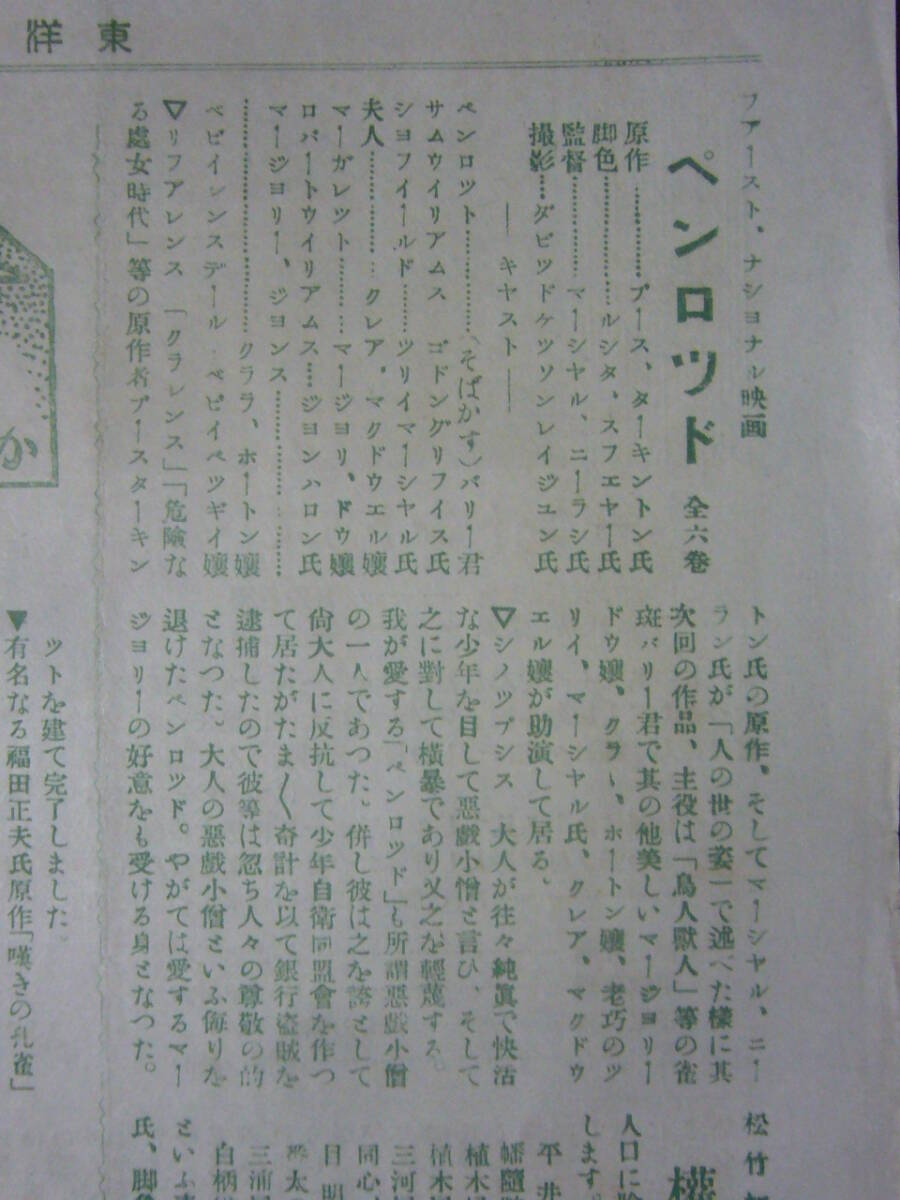 東洋
フアースト、ナシヨナル映画
ペンロツド 全六巻
原作………ブース、ターキントン氏
脚色………ルシタ、スフエヤー氏
監督………マーシヤル、ニーラン氏
撮影…ダビツドケツソンレイジユン氏
―キヤスト―
ペンロツト………(そばかす)バリー君
サムウイリアムス ゴドングリフイス氏
シヨフイールド……ツリイマーシヤル氏
夫人………クレア、マクドウエル嬢
マーガレツト……マージヨリ、ドウ嬢
ロバートウイリアムス…ジヨンハロン氏
マージヨリー、ジヨンス………
………クララ、ホートン嬢
ベビイレンスデール ベビイペツギイ嬢
▽リフアレンス 「クラレンス」「危險な
る處女時代」等の原作者ブースターキン
トン氏の原作、そしてマーシヤル、ニー
ラン氏が「人の世の姿」で述べた樣に其
次回の作品、主役は「鳥人獸人」等の雀
斑バリー君で其の他美しいマージヨリー
ドウ嬢、クラヽ、ホートン嬢、老巧のツ
リイ、マーシヤル氏、クレア、マクドウ
エル嬢が助演して居る。
▽シノツプシス 大人が往々純眞で快活
な少年を目して惡戲小僧と言ひ、そして
之に對して横暴であり又之を輕蔑する。
我が愛する「ペンロツド」も所謂惡戲小僧
の一人であつた。併し彼は之を誇として
尙大人に反抗して少年自衛同盟會を作つ
て居たがたま〱奇計を以て銀行盗賊を
逮捕したので彼等は忽ち人々の尊敬の的
となつた。大人の惡戲小僧といふ侮りを
退けたペンロツド。やがては愛するマー
ジヨリーの好意をも受ける身となつた。
か
ツトを建て完了しました。
▼有名なる福田正夫氏原作「嘆きの孔雀」
松竹
人口に
します。
平井
幡隨
植木
植木
三河
同心
目明
三浦
白柄
といふ
氏、脚色